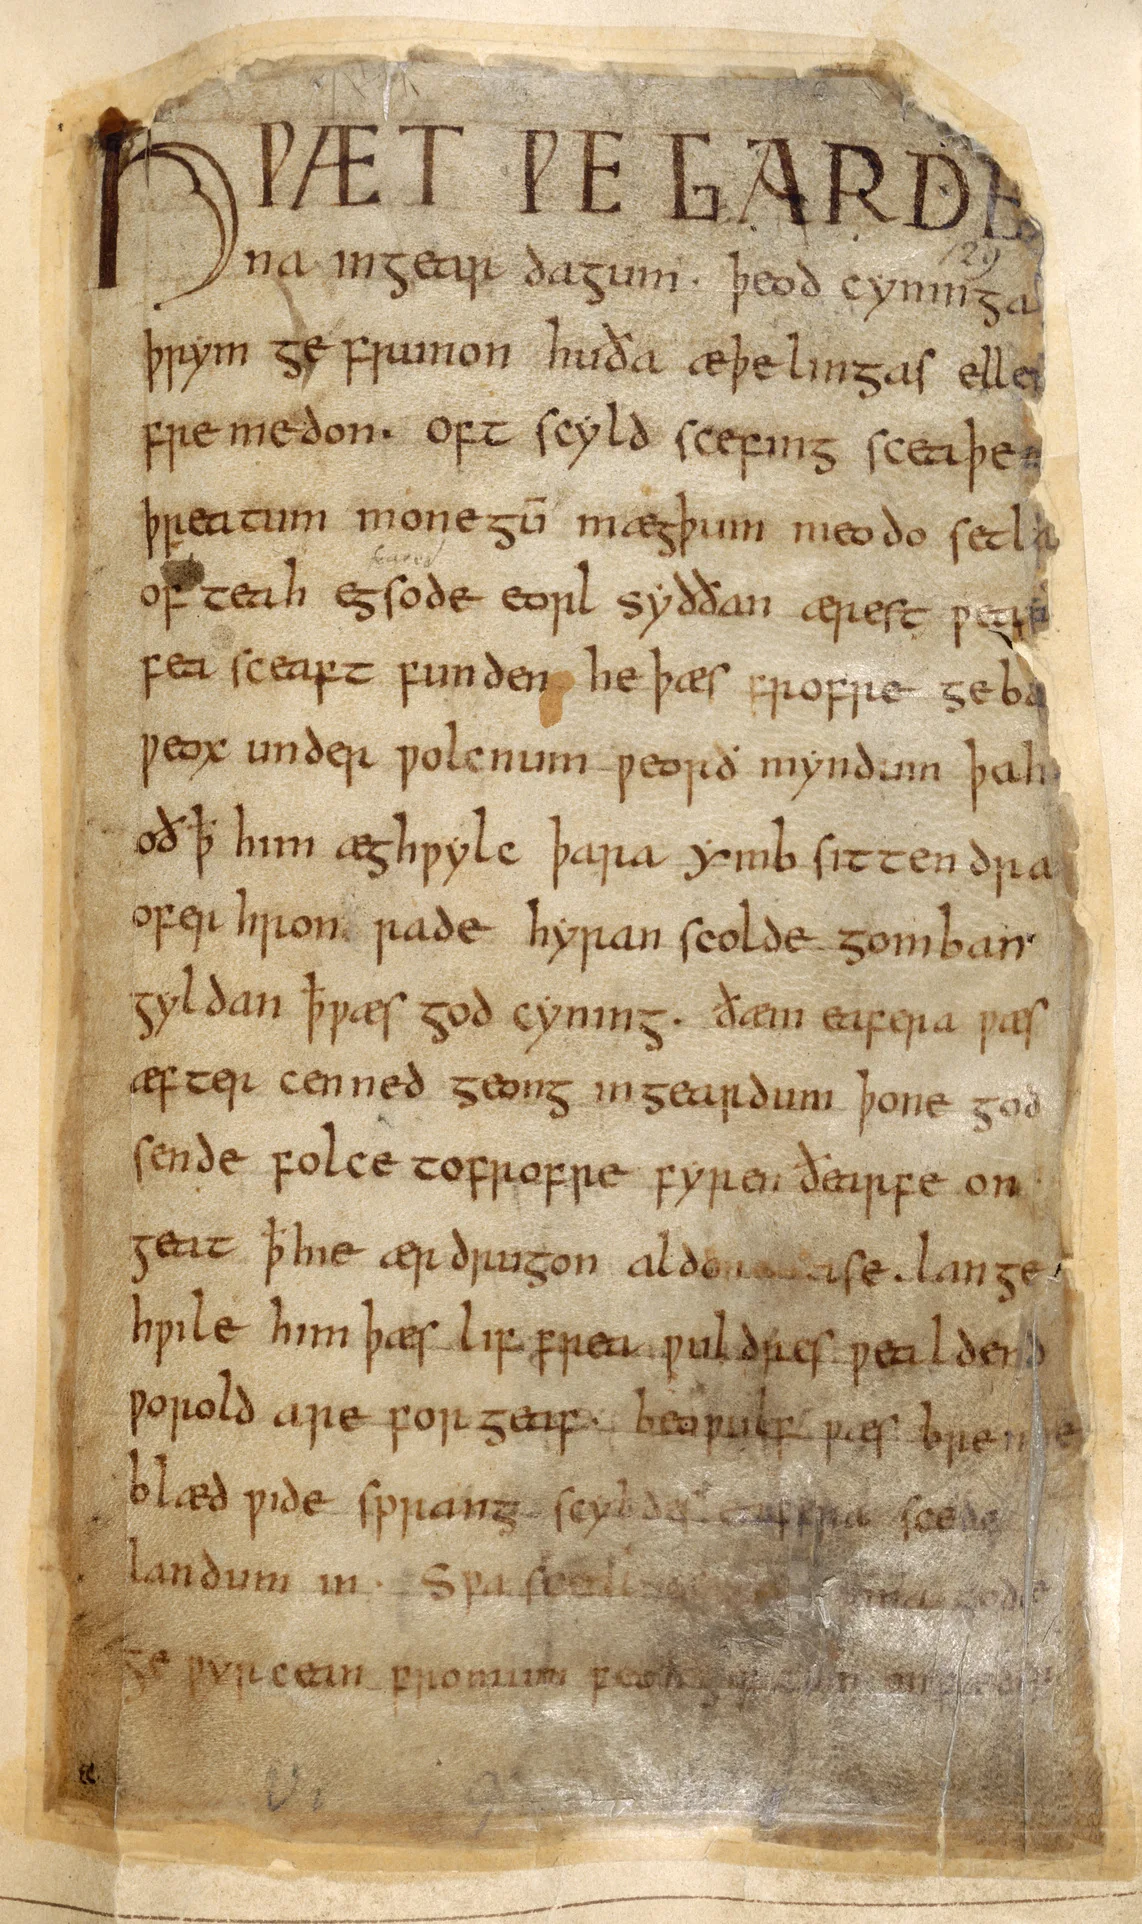 HǷÆT ǷE GARDE
na ingear dagum. þeod cyninga
þrym ge frunon huða æþelingas elle
fremedon. oft scyld scefing sceaþe
þreatum monegū mægþum meodo setla
of teah egsode eorl syððan ærest ƿear
fea sceaft funden he þæs frofre geba
ƿeox under ƿolcnum ƿeorð myndum þah
oð ꝥ him æghƿylc þara ymb sittendra
ofer hron rade hyran scolde gomban
gyldan ꝥ ƿæs god cyning. ðæm eafera ƿæs
æfter cenned geong ingeardum þone god
sende folce tofrofre fyren ðearfe on
geat ꝥ hie ær drugon aldor ase. lange
hƿile him þæs lif frea ƿuldres ƿealdend
ƿorold are for geaf. beoƿulf ƿæs breme
blæd ƿide sprang scyldes eafera scede
landum in. Sƿa gode
ge ƿyrcean fromum feoh giftum